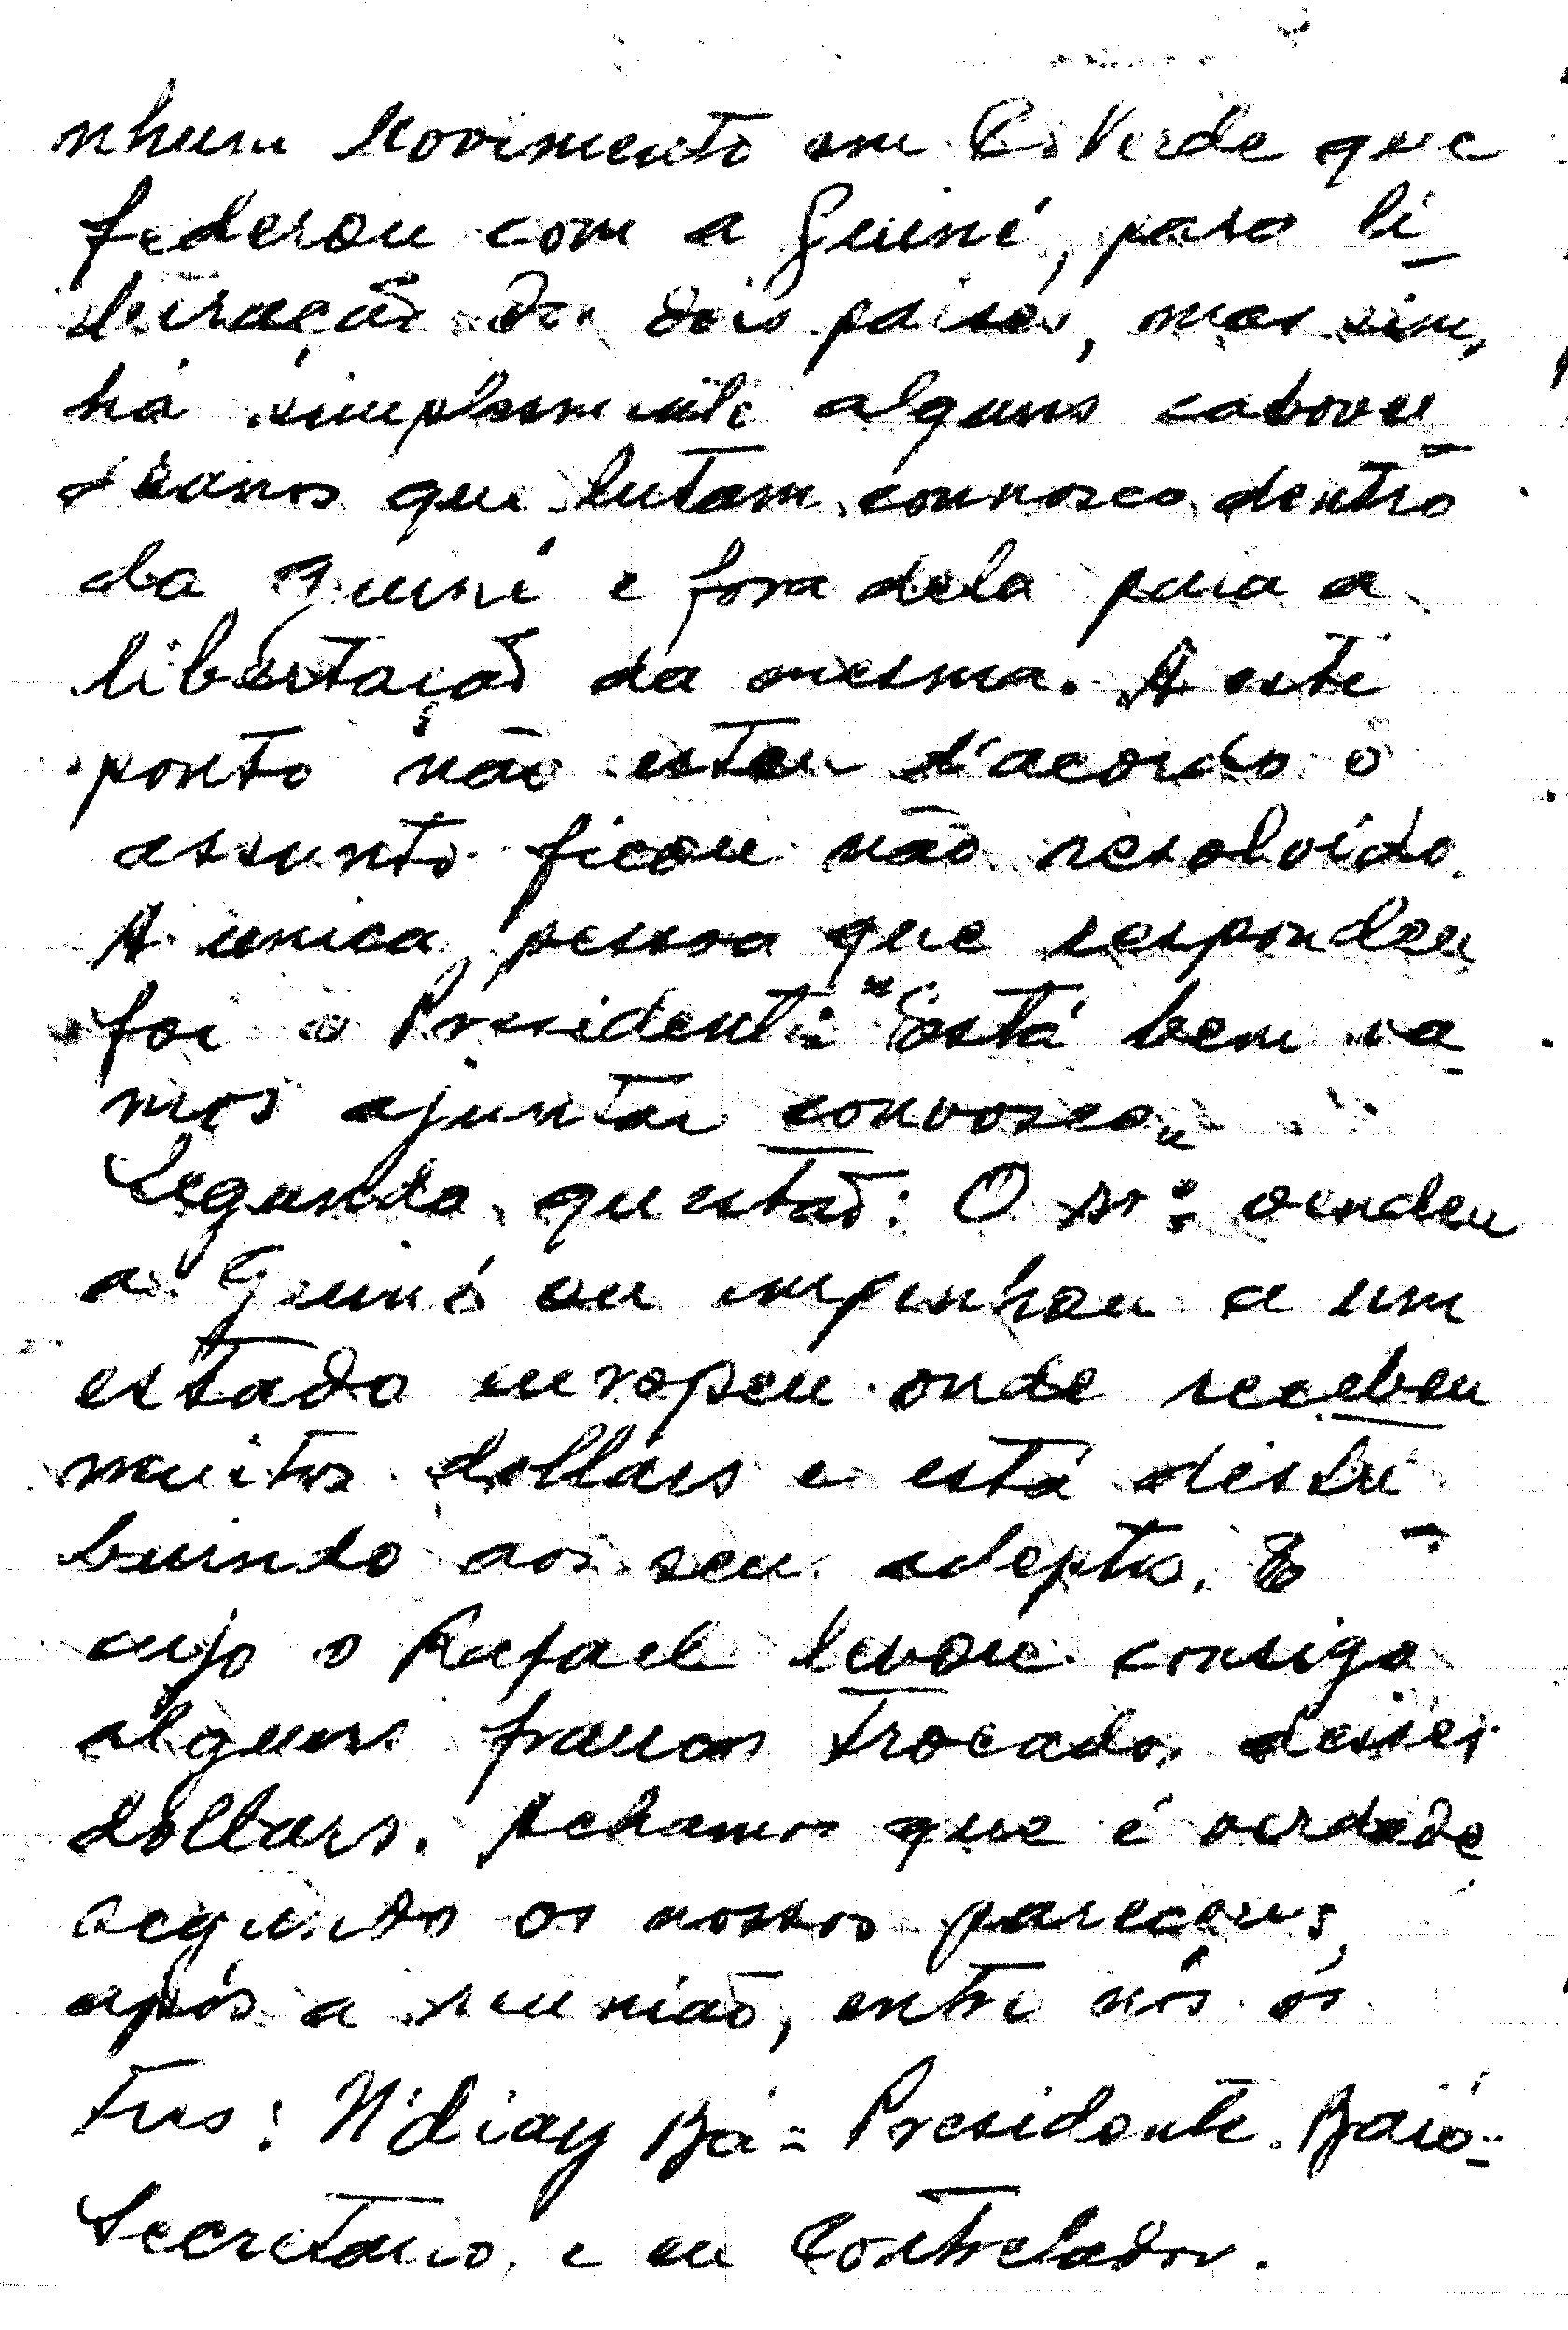 nhum Movimento em C. Verde que
federou com a Guiné, para li-
beração dos dois paises, mas sim,
há simplesmente alguns cabover-
deanos que lutam connosco dentro
da Guiné e fora dela para a
libertação da mesma. A este
ponto não estou d'acordo o
assunto ficou não resolvido.
A unica pessoa que respondeu
foi o Presidente: "Está bem va-
mos ajuntar convosco"
Segunda questão: O Sr. vendeu
a Guiné ou empenhou a um
estado europeu onde recebeu
muitos dollars e está distri-
buindo aos seus adeptos. E
cujo o Rafael levou consigo
alguns francos trocados desses
dollars. Achamos que é verdade
segundo os nossos pareceres,
após a reunião, entre nós os
tres: N'diay Bá = Presidente. Baió =
Secretario, e eu Controlador.